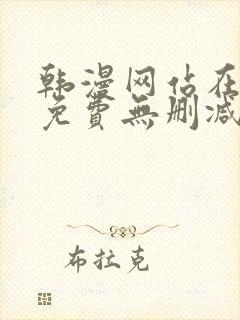 韩漫网站在
免費無刪减
布拉克